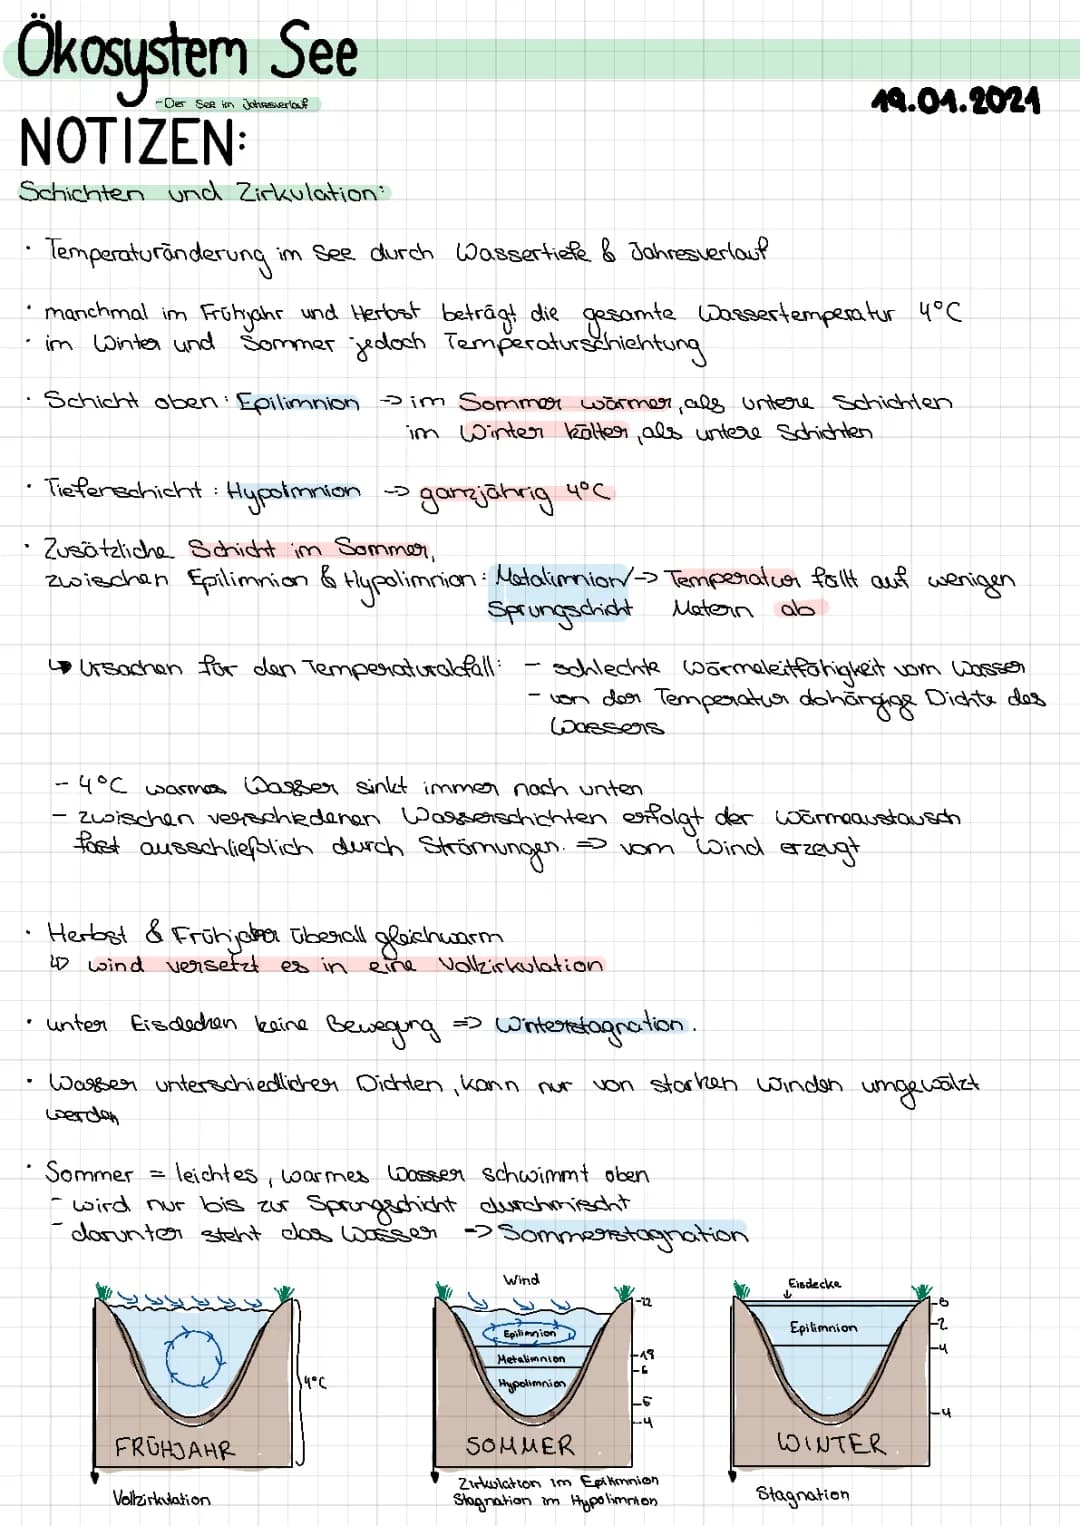 Ökosystem See
-Der See im Jahresverlauf
19.01.2021
NOTIZEN:
Schichten und Zirkulation:
· Temperaturänderung im See durch Wassertiefe & Jahresverlauf
· manchmal im Frühjahr und Herbst beträgt die gesamte Wassertemperatur 4°C
· im Winter und Sommer jedoch Temperaturschichtung
· Schicht oben: Epilimnion -> im Sommer wärmer, als untere Schichten
im Winter kälter, als untere Schichten
· Tiefenschicht: Hypolmnion -> ganzjährig 4°C
· Zusätzliche Schicht im Sommer,
zwischen Epilimnion & Hypolimnion: Metalimnion/-> Temperatur fällt auf wenigen
Sprungschicht Metern ab
↳ Ursachen für den Temperaturabfall: - schlechte Wärmeleitfähigkeit vom Wasser
- von der Temperatur abhängige Dichte des
Wassers
- 4°C warmes Wasser sinkt immer nach unten
- zwischen verschiedenen Wasserschichten erfolgt der Wärmeaustausch
fast ausschließlich durch Strömungen. => vom Wind erzeugt
· Herbst & Frühjahr überall gleichwarm
↳ wind versetzt es in eine Vollzirkulation
· unter Eisdecken keine Bewegung => Winterstagnation.
· Wasser unterschiedlicher Dichten, kann nur von starken Winden umgewälzt
werden
· Sommer = leichtes, warmes Wasser schwimmt oben
- wird nur bis zur Sprungschicht durchmischt
- darunter steht das Wasser -> Sommerstagnation
4°C
FRÜHJAHR
Vollzirkulation
Wind
Epilimnion
Metalimnion
Hypolimnion
-22
-18
-6
-5
-4
SOMMER
Zirkulation im Epilimnion
Stagnation im Hypolimnion
Eisdecke
Epilimnion
-0
-2
-4
-4
WINTER
Stagnation